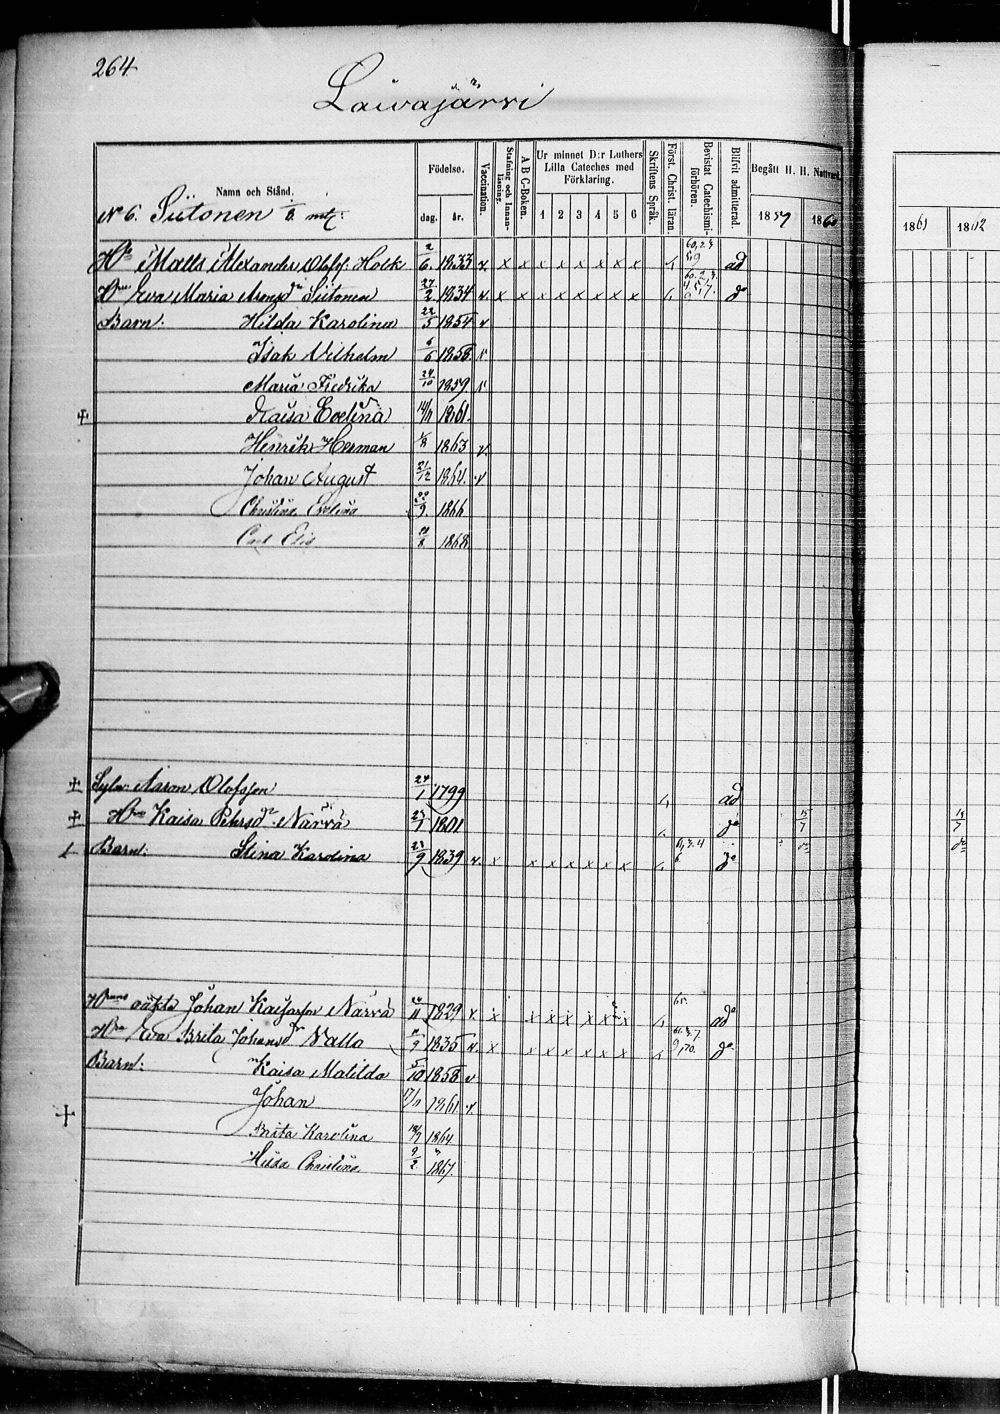 264
Laivajärvi
Namn och Stånd.
Födelse.
dag. år.
Vaccination.
Stafning och Innanläsning.
A B C-Boken.
Ur minnet D:r Luthers Lilla Cateches med Förklaring.
1 2 3 4 5 6
Skriftens Språk.
Först. Christ. läran.
Bevistat Catechismiförhören.
Blifvit admitterad.
Begått H. H. Nattvard.
1859 1860 1861 1862
N 6. Siitonen
Matts Alexander Olofss. Holk 2/6 1833 v. x x x x x x x x ad
Eva Maria Aronsdr Siitonen 27/2 1834 v. x x x x x x x x do
Barn: Hilda Karolina 22/5 1854 v
Isak Vilhelm 6/6 1858 v
Maria Fredrika 24/10 1859 v
Kaisa Evelina 14/11 1861.
Henrik Herman 1863 v
Johan August 21/12 1864. v
Christina Evelina 22/9 1866
Carl Elis 1868
Aaron Olofsson 24/1 1799 ad
Kaisa Pehrsdr Närvä 1801 do 15/7
Barn: Stina Karolina 23/9 1839 v. x x x x x x x do
Johan Kaisasson Närvä 1829 x x x x x x x x ad
Eva Brita Johansdr Valla 1835 v. x x x x x x x do
Barn: Kaisa Matilda 5/10 1858 v
Johan 17/11 1861 v.
Brita Karolina 1864
Hilda Christina 9/2 1867.